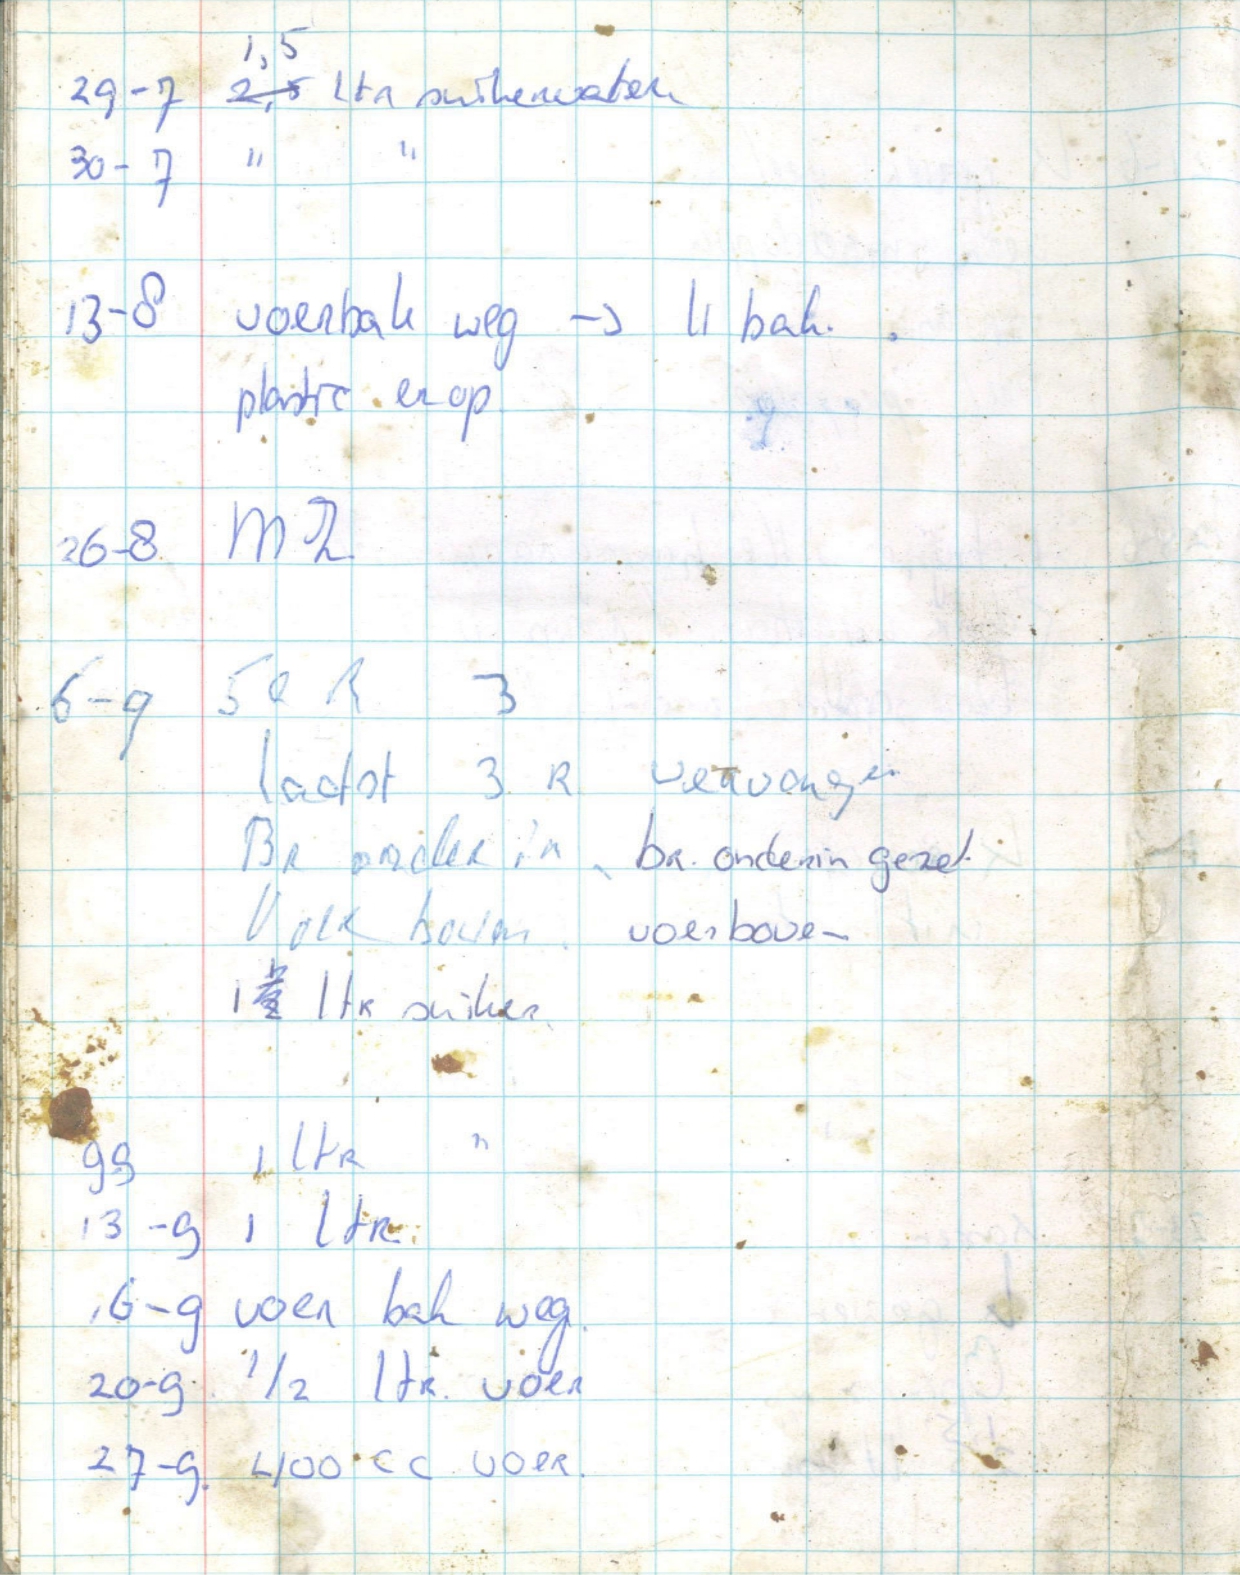 1,5
29-7 2,5 ltr suikerwater
30-7 " "
13-8 voerbak weg → 11 bak.
plastic erop
26-8 MR
6-9 5e R 3
laatst 3 R vervangen
Br onder in, br. onderin gezet
Volk boven. voer boven
1 ltr suiker
99 1 ltr "
13-9 1 ltr.
16-9 voer bak weg.
20-9. 1/2 ltr. voer
27-9. 400 cc voer.